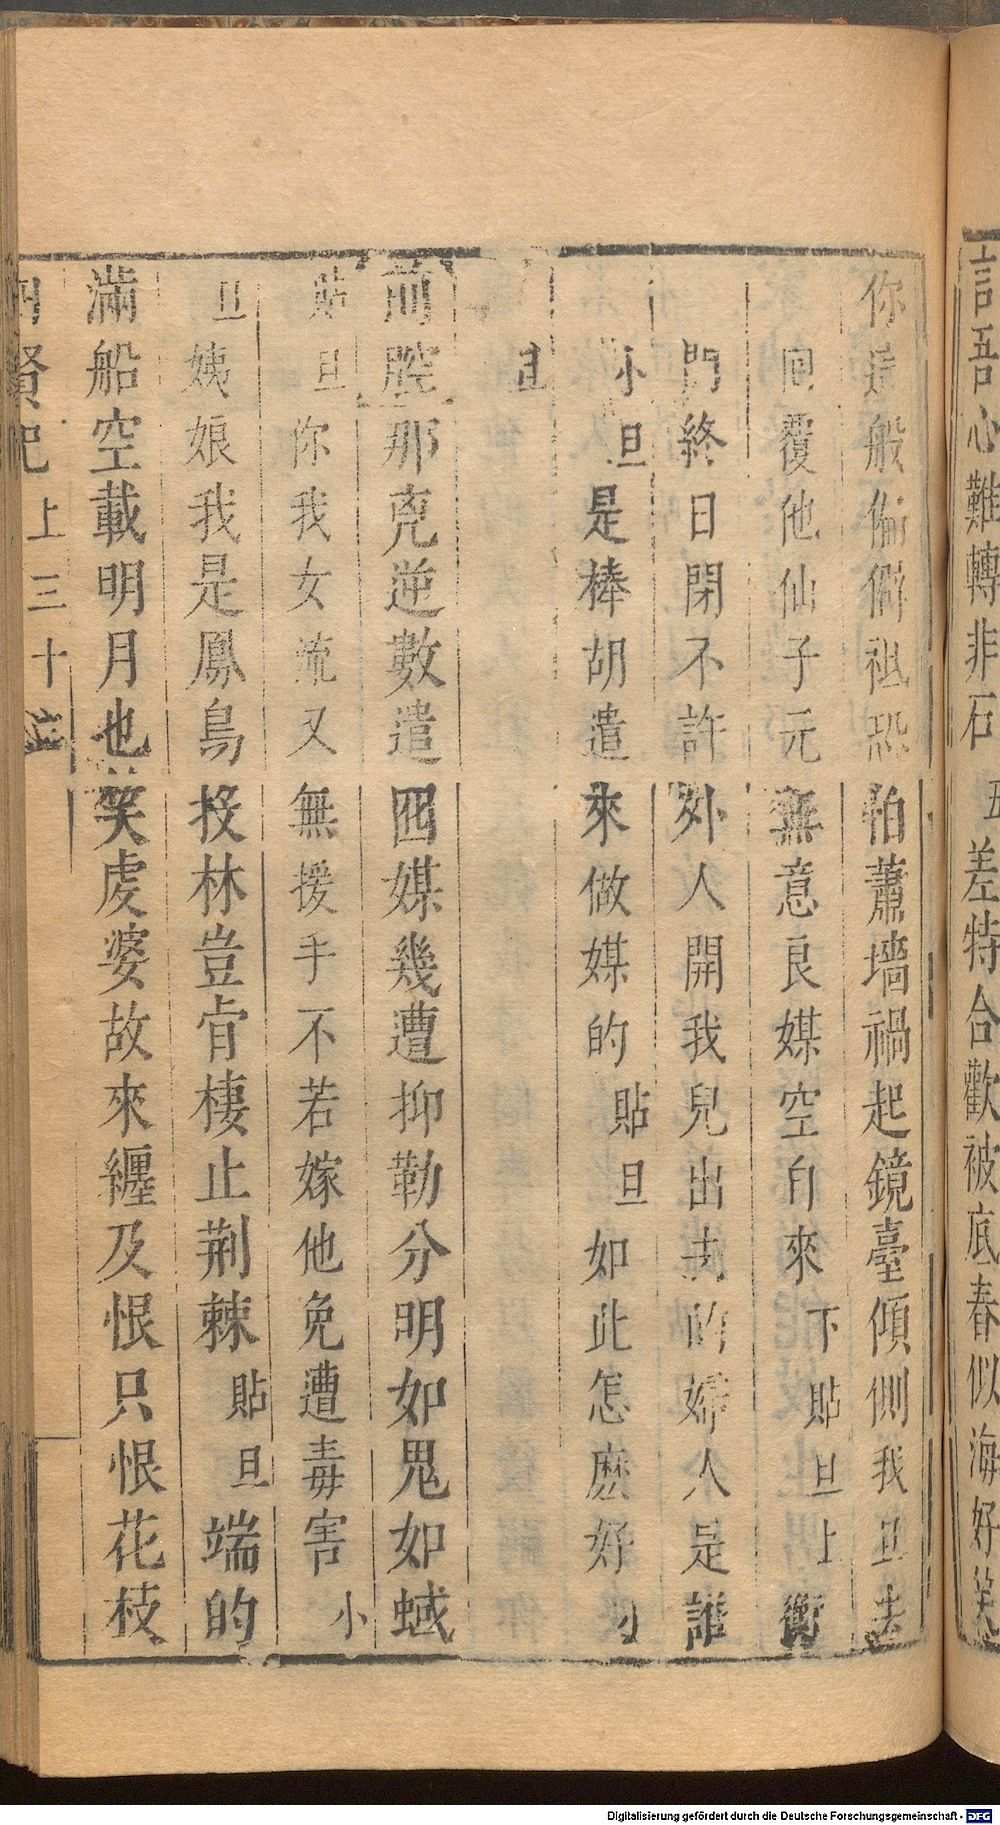 言吾心難轉非石 五差特合歡被底春似海好笑
你這般偏僻祗恐怕蕭墻禍起鏡臺傾側我且去
回覆他仙子元無意良媒空自來下貼旦上衡
門終日閉不許外人開我兒出去的婦人是誰
小旦是棒胡遣來做媒的貼旦如此怎麽好小
旦
前腔那兇逆數遣囮媒幾遭抑勒分明如鬼如蜮
貼旦你我女流又無援手不若嫁他免遭毒害小
旦姨娘我是鳳鳥投林豈肯棲止荆棘貼旦端的
滿船空載明月也笑虔婆故來纏及恨只恨花枝
四賢記 上 三十
Digitalisierung gefördert durch die Deutsche Forschungsgemeinschaft - DFG